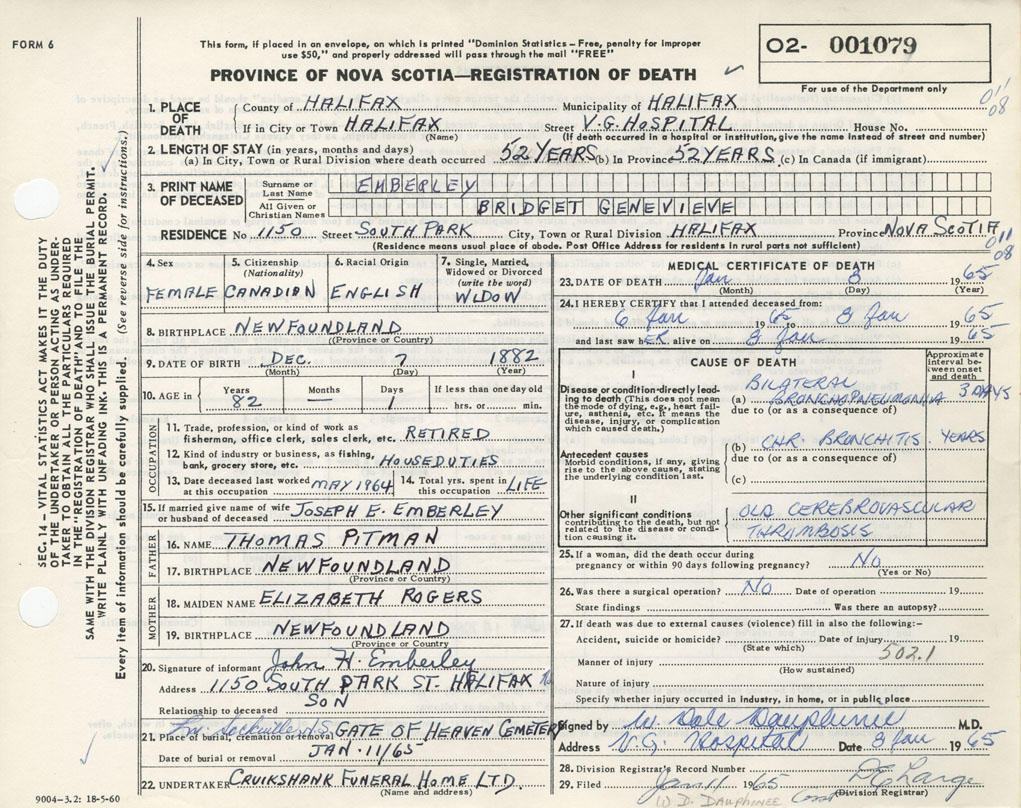 FORM 6
This form, if placed in an envelope, on which is printed "Dominion Statistics – Free, penalty for improper
use $50," and properly addressed will pass through the mail "FREE"
PROVINCE OF NOVA SCOTIA—REGISTRATION OF DEATH
O2- 001079
For use of the Department only
SEC. 14 – VITAL STATISTICS ACT MAKES IT THE DUTY
OF THE UNDERTAKER OR PERSON ACTING AS UNDER-
TAKER TO OBTAIN ALL THE PARTICULARS REQUIRED
IN THE "REGISTRATION OF DEATH" AND TO FILE THE
SAME WITH THE DIVISION REGISTRAR WHO SHALL ISSUE THE BURIAL PERMIT.
WRITE PLAINLY WITH UNFADING INK. THIS IS A PERMANENT RECORD.
Every item of information should be carefully supplied. (See reverse side for instructions.)
1. PLACE OF DEATH
County of HALIFAX Municipality of HALIFAX
011
08
If in City or Town HALIFAX Street V.G. HOSPITAL House No.
(Name) (If death occurred in a hospital or institution, give the name instead of street and number)
2. LENGTH OF STAY (in years, months and days)
(a) In City, Town or Rural Division where death occurred 52 YEARS (b) In Province 52 YEARS (c) In Canada (if immigrant)
3. PRINT NAME OF DECEASED
Surname or Last Name EMBERLEY
All Given or Christian Names BRIDGET GENEVIEVE
RESIDENCE No 1150 Street SOUTH PARK City, Town or Rural Division HALIFAX Province NOVA SCOTIA
(Residence means usual place of abode. Post Office Address for residents in rural parts not sufficient)
011
08
4. Sex
FEMALE
5. Citizenship (Nationality)
CANADIAN
6. Racial Origin
ENGLISH
7. Single, Married, Widowed or Divorced (write the word)
WIDOW
8. BIRTHPLACE NEWFOUNDLAND
(Province or Country)
9. DATE OF BIRTH DEC. 7 1882
(Month) (Day) (Year)
10. AGE in Years 82 Months — Days 1 If less than one day old hrs. or min.
OCCUPATION
11. Trade, profession, or kind of work as
fisherman, office clerk, sales clerk, etc. RETIRED
12. Kind of industry or business, as fishing,
bank, grocery store, etc. HOUSEDUTIES
13. Date deceased last worked at this occupation MAY 1964 14. Total yrs. spent in this occupation LIFE
15. If married give name of wife or husband of deceased JOSEPH E. EMBERLEY
FATHER
16. NAME THOMAS PITMAN
17. BIRTHPLACE NEWFOUNDLAND
(Province or Country)
MOTHER
18. MAIDEN NAME ELIZABETH ROGERS
19. BIRTHPLACE NEWFOUNDLAND
(Province or Country)
20. Signature of informant John H. Emberley
Address 1150 SOUTH PARK ST. HALIFAX
Relationship to deceased SON
21. Place of burial, cremation or removal Lr. Sackville N.S. GATE OF HEAVEN CEMETERY
Date of burial or removal JAN. 11/65
22. UNDERTAKER CRUIKSHANK FUNERAL HOME LTD.
(Name and address)
9004-3.2: 18-5-60
MEDICAL CERTIFICATE OF DEATH
23. DATE OF DEATH Jan 8 1965
(Month) (Day) (Year)
24. I HEREBY CERTIFY that I attended deceased from:
6 Jan 1965 8 Jan 1965
and last saw hER alive on 8 Jan 1965
CAUSE OF DEATH
Approximate interval between onset and death
I
Disease or condition directly leading to death (This does not mean the mode of dying, e.g., heart failure, asthenia, etc. It means the disease, injury, or complication which caused death.)
(a) BILATERAL BRONCHOPNEUMONIA 3 DAYS
due to (or as a consequence of)
Antecedent causes
Morbid conditions, if any, giving rise to the above cause, stating the underlying condition last.
(b) CHR. BRONCHITIS. YEARS
due to (or as a consequence of)
(c)
II
Other significant conditions
contributing to the death, but not related to the disease or condition causing it.
OLD CEREBROVASCULAR
THROMBOSIS
25. If a woman, did the death occur during
pregnancy or within 90 days following pregnancy? No
(Yes or No)
26. Was there a surgical operation? No Date of operation 19
State findings Was there an autopsy?
27. If death was due to external causes (violence) fill in also the following:–
Accident, suicide or homicide? Date of injury 19
(State which) 502.1
Manner of injury
(How sustained)
Nature of injury
Specify whether injury occurred in industry, in home, or in public place
Signed by W. Dale Dauphinee M.D.
Address V.G. Hospital Date 8 Jan 1965
28. Division Registrar's Record Number
29. Filed Jan 11 1965
(Division Registrar)
W D. DAUPHINEE